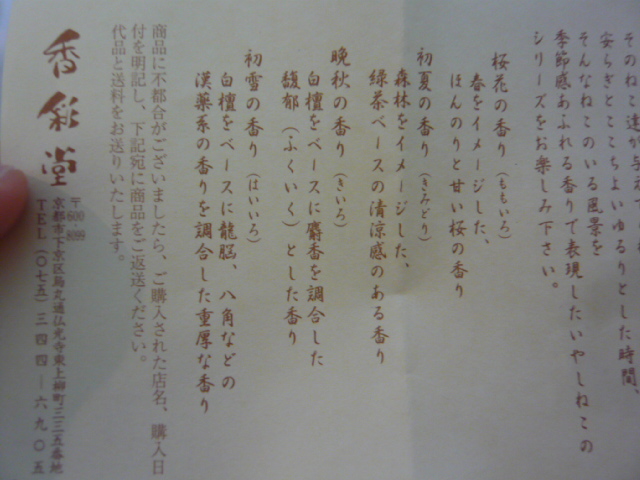 そのねこ達が
安らぎとここちよいゆるりとした時間、
そんなねこのいる風景を
季節感あふれる香りで表現したいやしねこの
シリーズをお楽しみ下さい。
桜花の香り（ももいろ）
春をイメージした、
ほんのりと甘い桜の香り
初夏の香り（きみどり）
森林をイメージした、
緑茶ベースの清涼感のある香り
晩秋の香り（きいろ）
白檀をベースに麝香を調合した
馥郁（ふくいく）とした香り
初雪の香り（はいいろ）
白檀をベースに龍脳、八角などの
漢薬系の香りを調合した重厚な香り
商品に不都合がございましたら、ご購入された店名、購入日
付を明記し、下記宛に商品をご返送ください。
代品と送料をお送りいたします。
香彩堂
〒600-8099
京都市下京区烏丸通仏光寺東上柳町三三五番地
TEL（〇七五）三四四―六九〇五